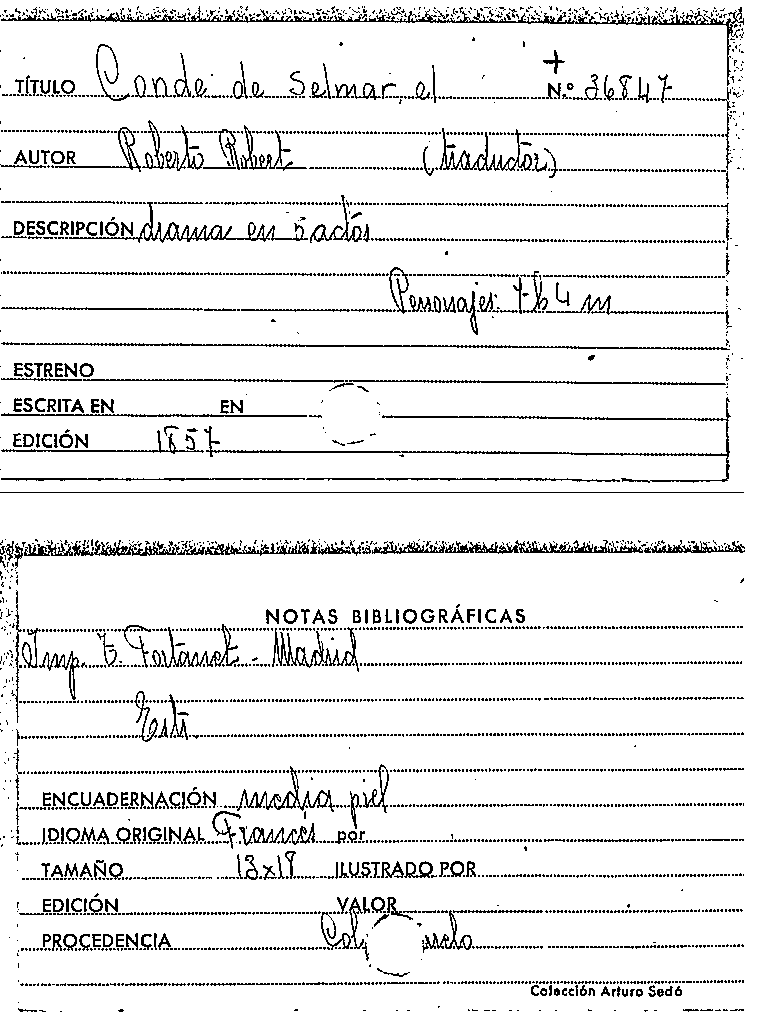 TÍTULO Conde de Selmar, el N.º 36847
AUTOR Roberto Robert (traductor)
DESCRIPCIÓN drama en 5 actos
Personajes: 7 h 4 m
ESTRENO
ESCRITA EN EN
EDICIÓN 1857
NOTAS BIBLIOGRÁFICAS
Imp. T. Fortanet - Madrid
Estr.
ENCUADERNACIÓN media piel
IDIOMA ORIGINAL Francés por
TAMAÑO 13x19 ILUSTRADO POR
EDICIÓN VALOR
PROCEDENCIA
Colección Arturo Sedó